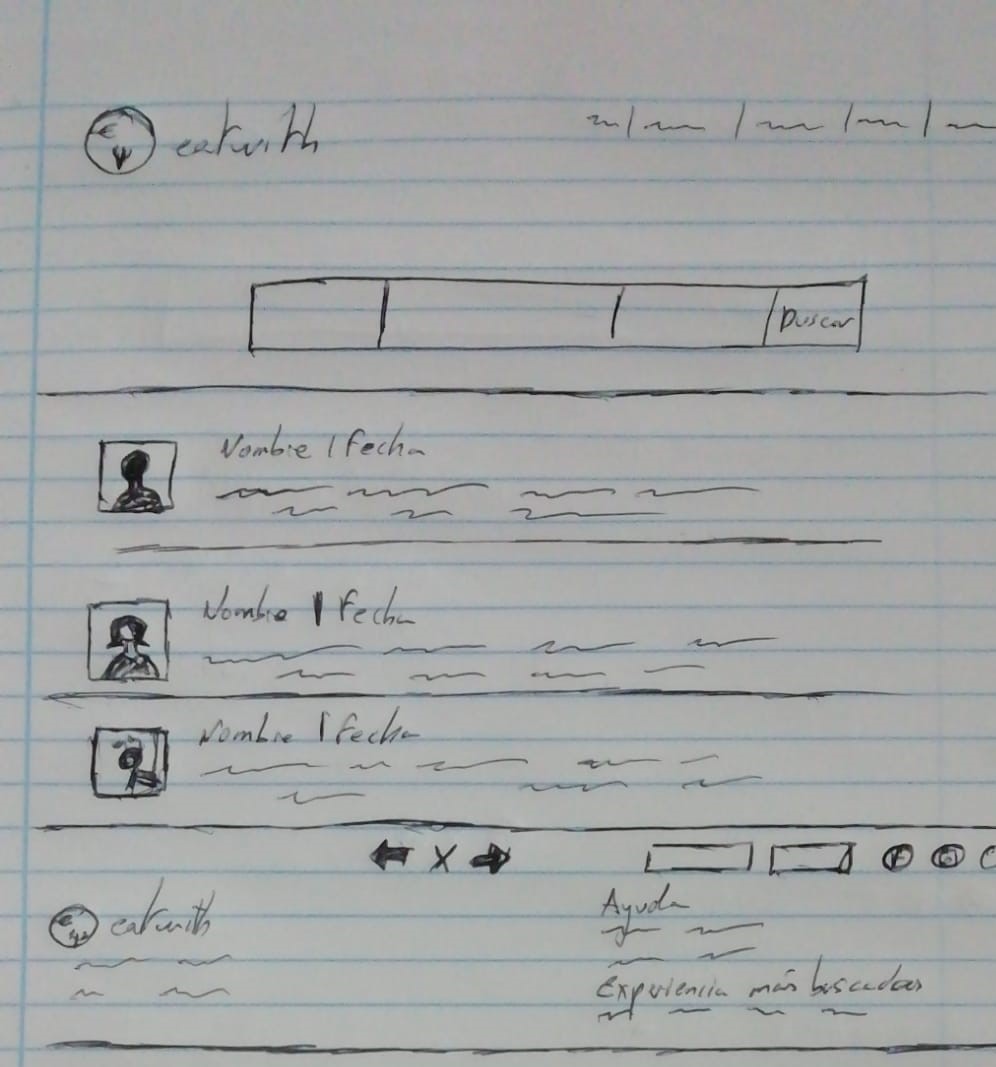 eatwith
Buscar
Nombre | Fecha
Nombre | Fecha
Nombre | Fecha
X
eatwith
Ayuda
Experiencia más buscadas